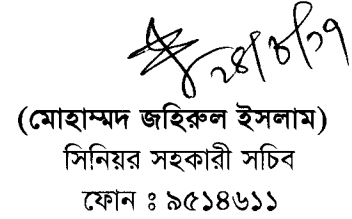 ২৪/৮/১৭
(মোহাম্মদ জহিরুল ইসলাম)
সিনিয়র সহকারী সচিব
ফোন ঃ ৯৫১৪৬১১